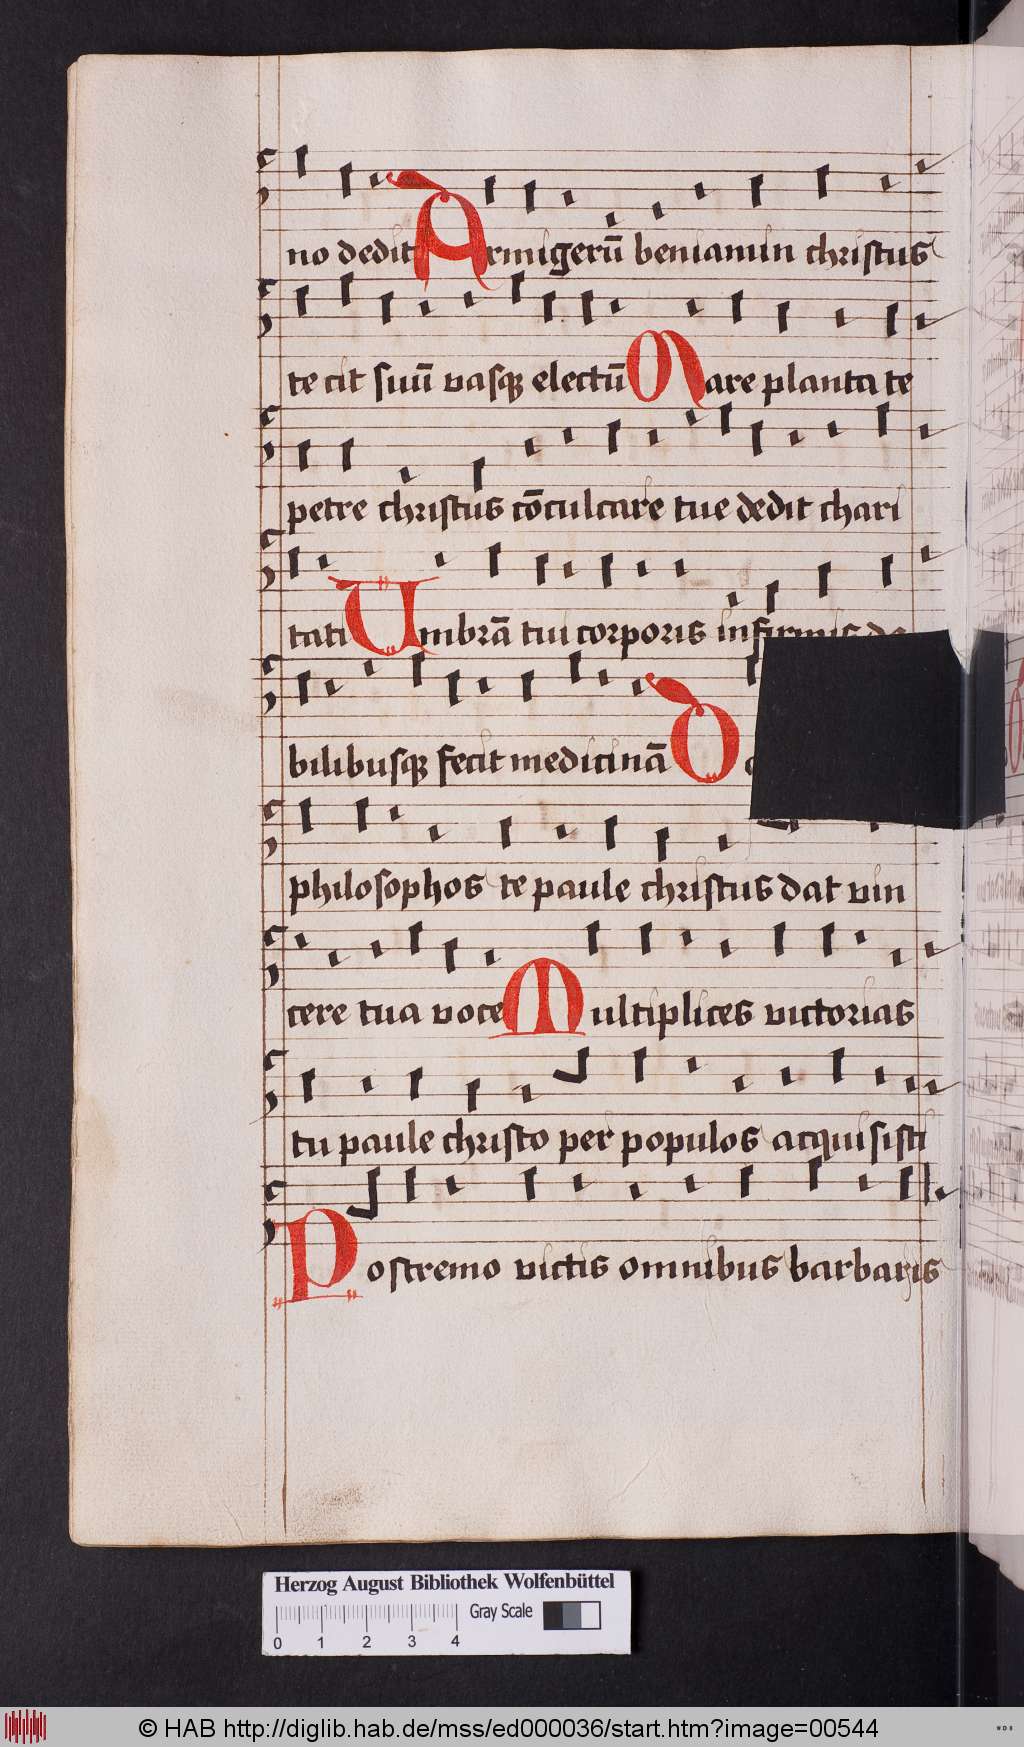 no dedit Armigerū beniamin christus
te cit suū vasq electū Mare planta te
petre christus cōculcare tue dedit chari
tati Umbrā tui corporis infirmis de
bilibusq fecit medicinā D
philosophos te paule christus dat vin
cere tua voce Multiplices victorias
tu paule christo per populos acquisisti
Postremo victis omnibus barbaris
Herzog August Bibliothek Wolfenbüttel
Gray Scale
0 1 2 3 4
© HAB http://diglib.hab.de/mss/ed000036/start.htm?image=00544